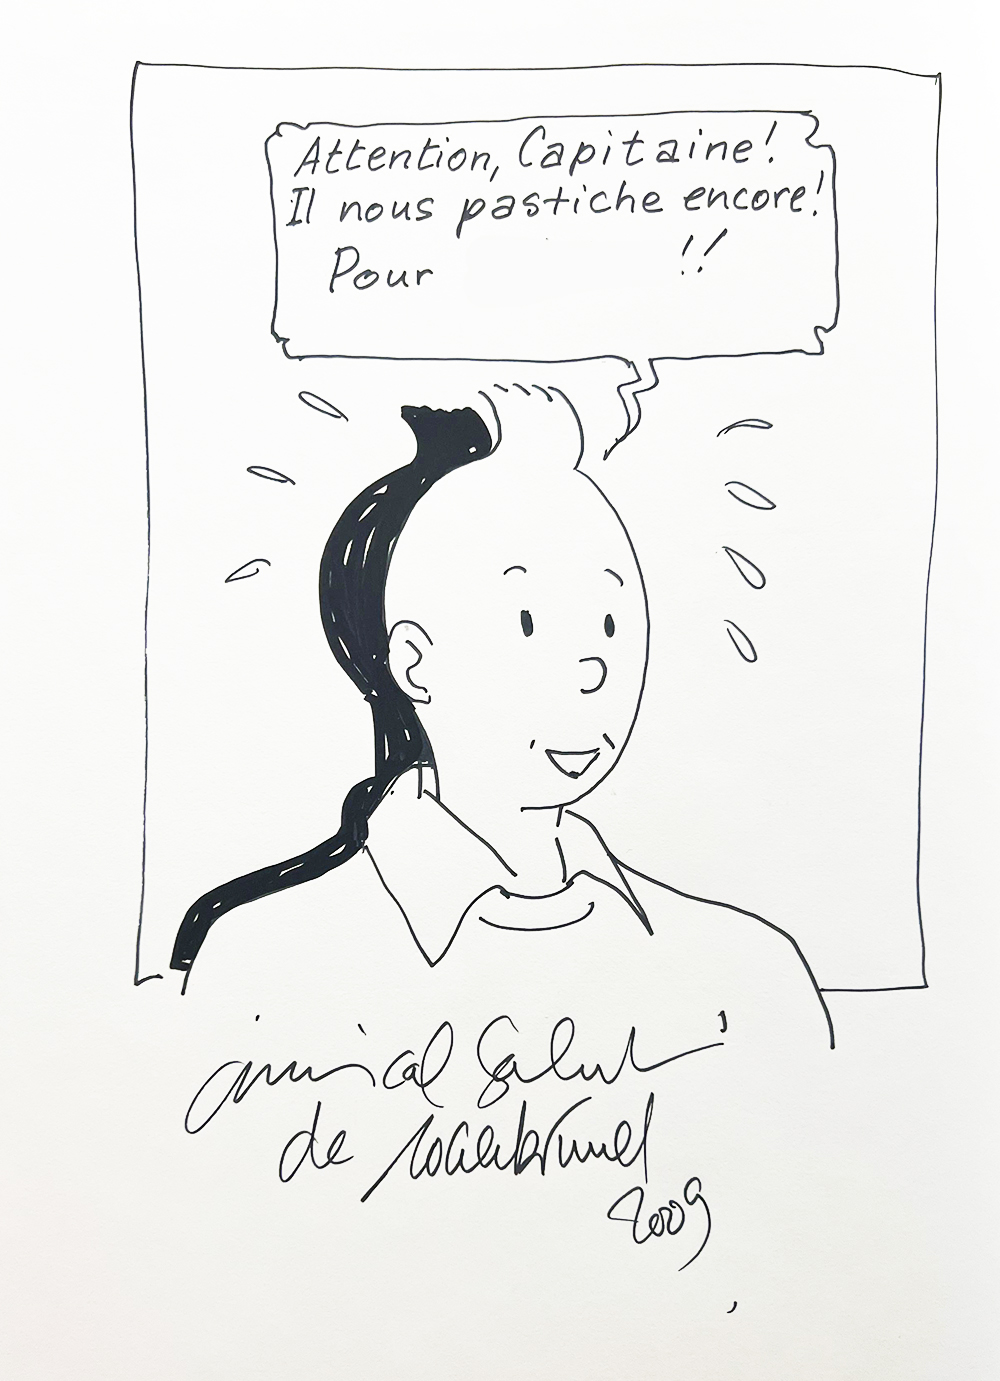 Attention, Capitaine!
Il nous pastiche encore!
Pour !!
amical Salut
de
2009